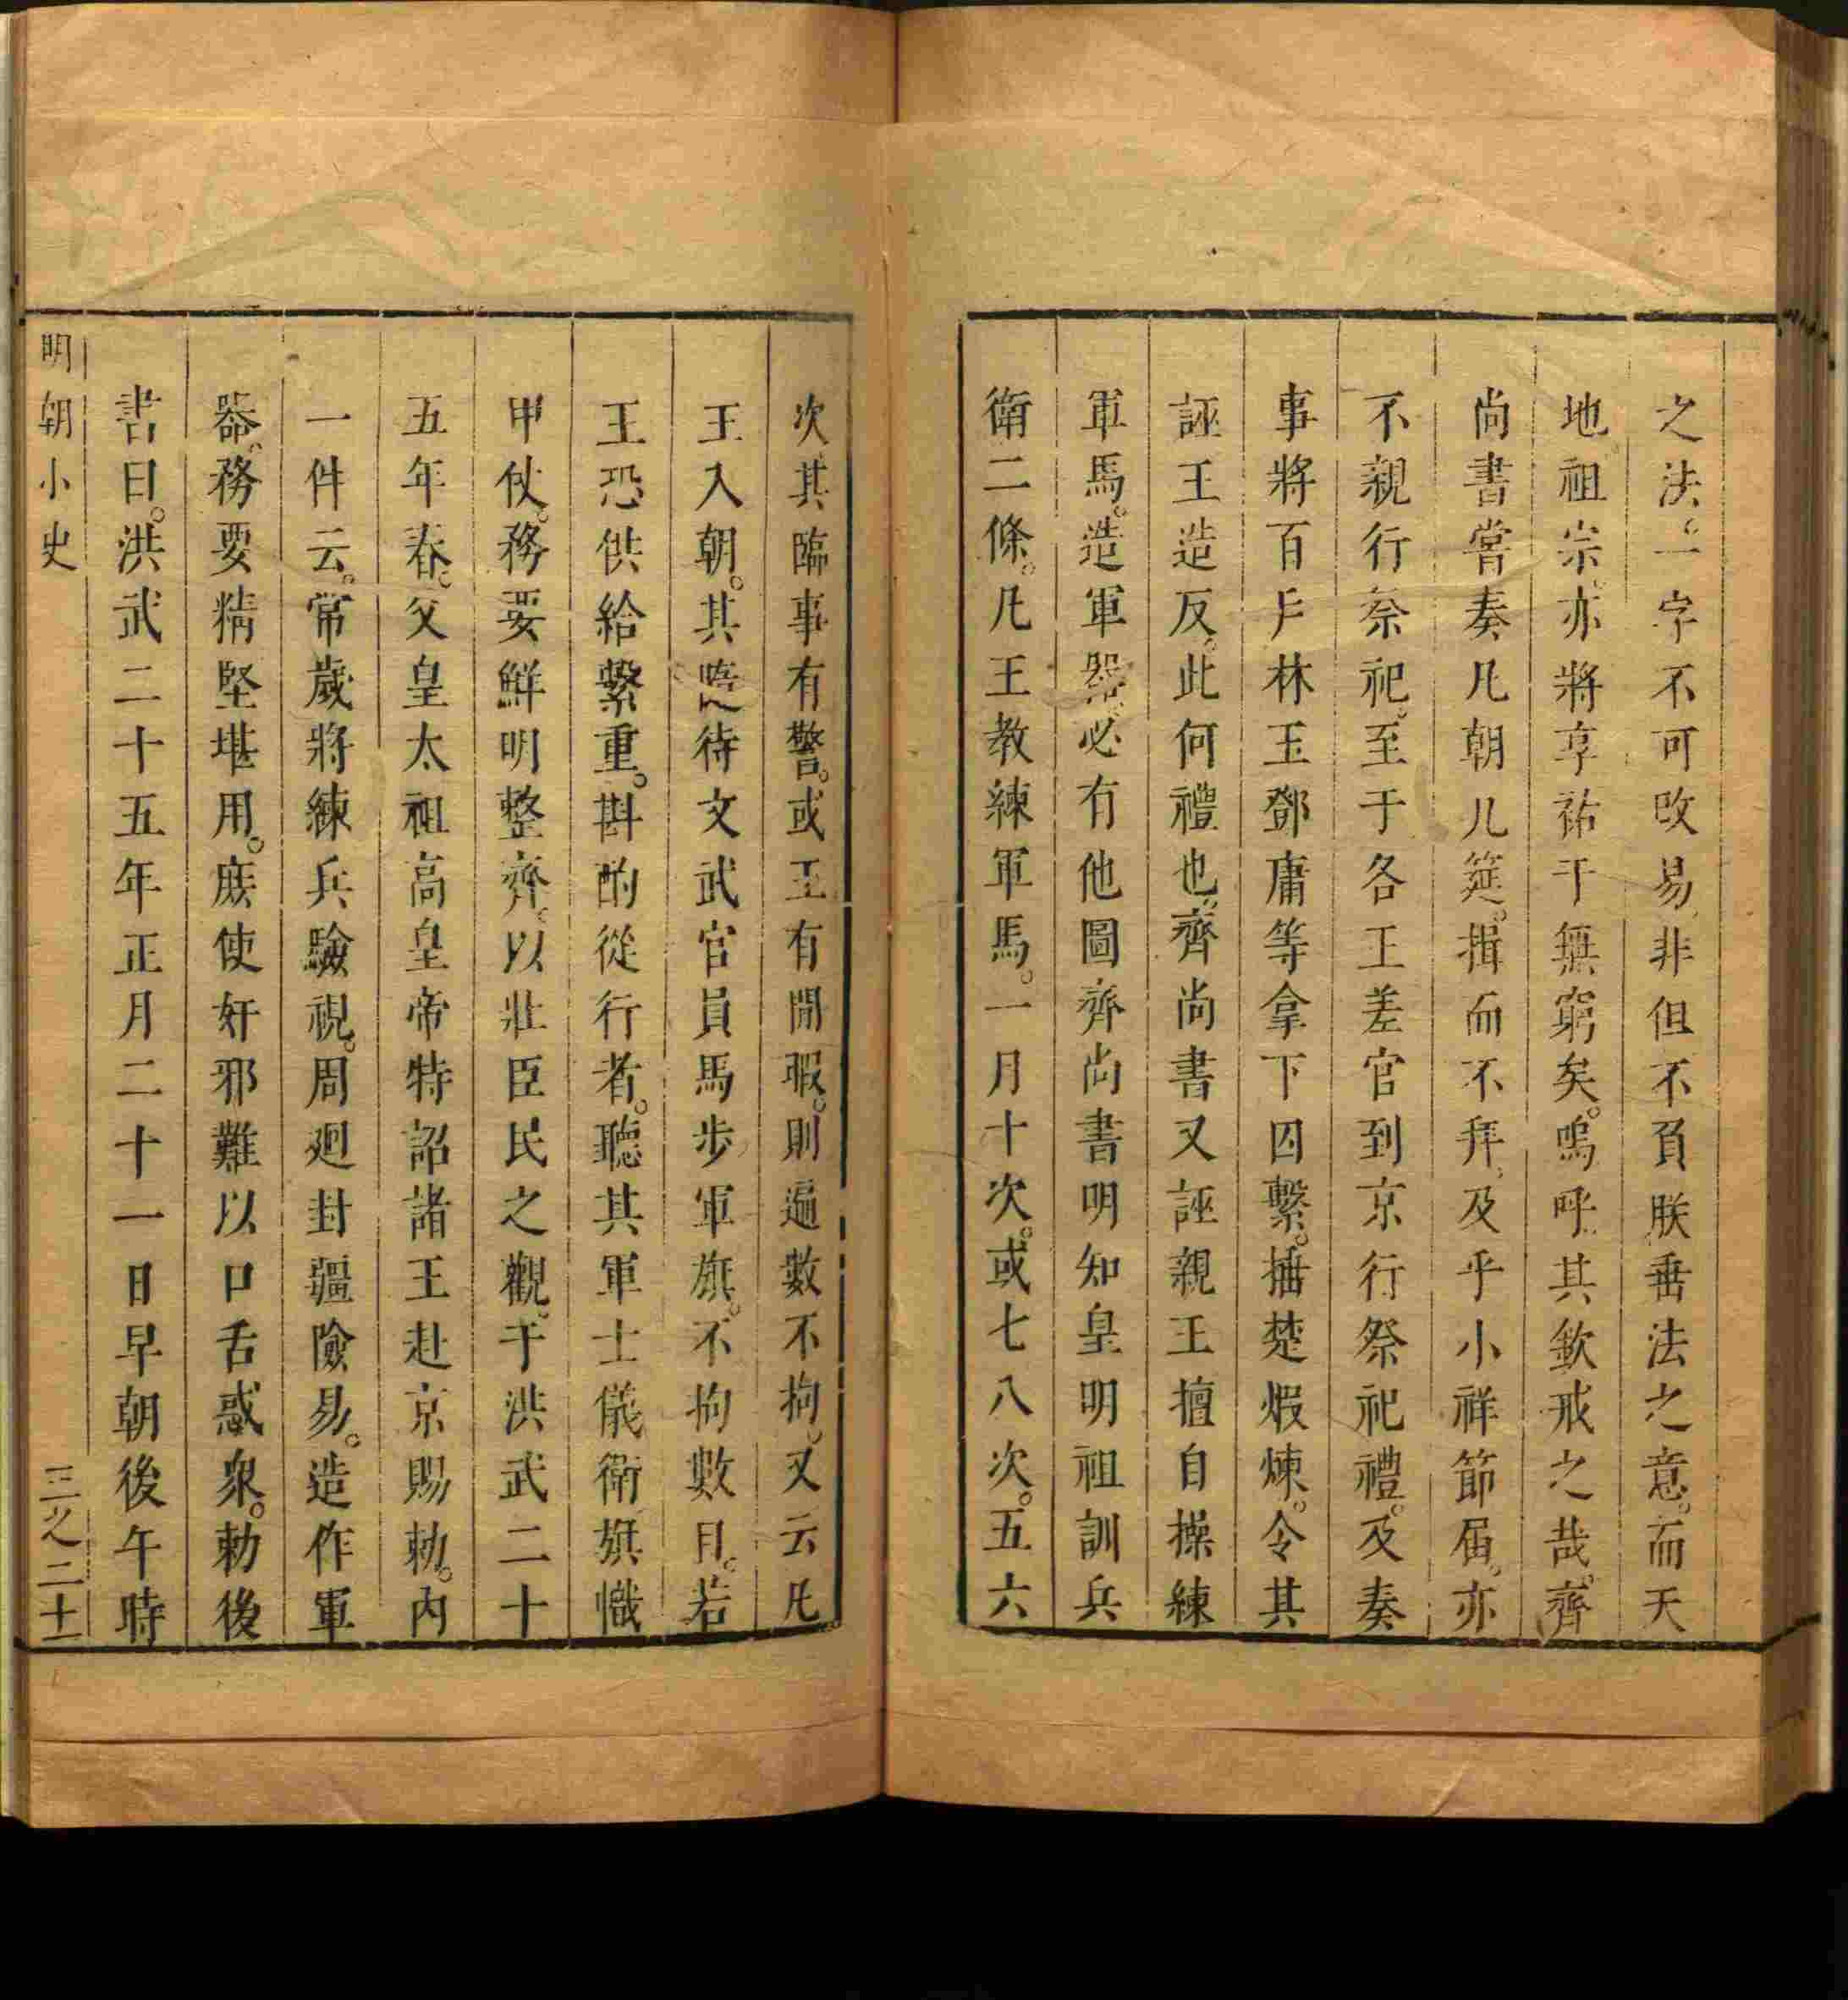 之法。一字不可改易。非但不負朕垂法之意。而天
地。祖宗。亦將享祐于無窮矣。嗚呼。其欽戒之哉。齊
尚書嘗奏凡朝几筵。揖而不拜。及乎小祥節届。亦
不親行祭祀。至于各王差官到京行祭祀禮。及奏
事將百戶林玉鄧庸等拿下囚繫。捶楚煆煉。令其
誣王造反。此何禮也。齊尚書又誣親王擅自操練
軍馬。造軍器。必有他圖齊尚書明知皇明祖訓兵
衛二條。凡王教練軍馬。一月十次。或七八次。五六
次。其臨事有警。或王有閒暇。則遍數不拘。又云凡
王入朝。其隨待文武官員馬步軍旗。不拘數目。若
王恐供給繁重。斟酌從行者。聽其軍士儀衛旗幟
甲仗。務要鮮明整齊。以壯臣民之觀。于洪武二十
五年春。父皇太祖高皇帝特詔諸王赴京賜勅。內
一件云。常歲將練兵驗視。周廻封疆險易。造作軍
器。務要精堅堪用。庶使奸邪難以口舌惑衆。勅後
書曰。洪武二十五年正月二十一日早朝後午時
明朝小史
三之二十一